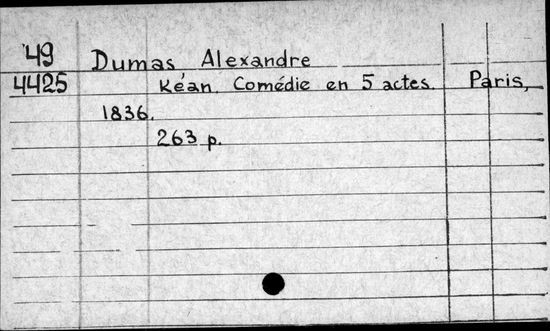 49 Dumas Alexandre
4425 Kéan. Comédie en 5 actes. Paris,
1836.
263 p.